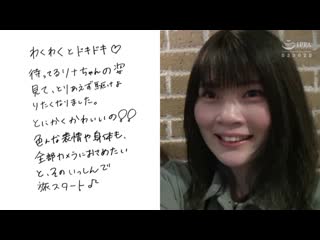 わくわくとドキドキ♡
待ってるリナちゃんの姿
見て、とりあえず駆けよ
りたくなりました。
とにかくかわいいの!!
色んな表情や身体も、
全部カメラにおさめたい
と、そのいっしんで
旅スタート♪